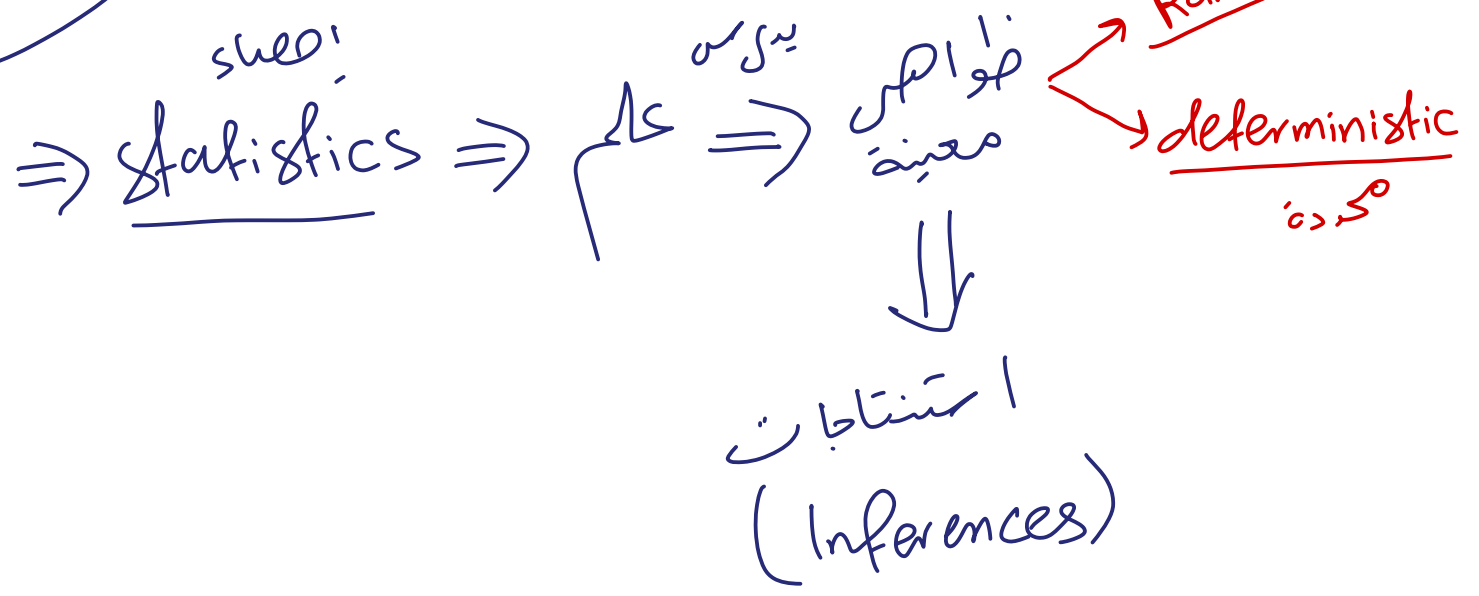 إحصاء
⇒ statistics ⇒ علم ⇒ يدرس ظواهر
معينة
deterministic
محددة
استنتاجات
(Inferences)